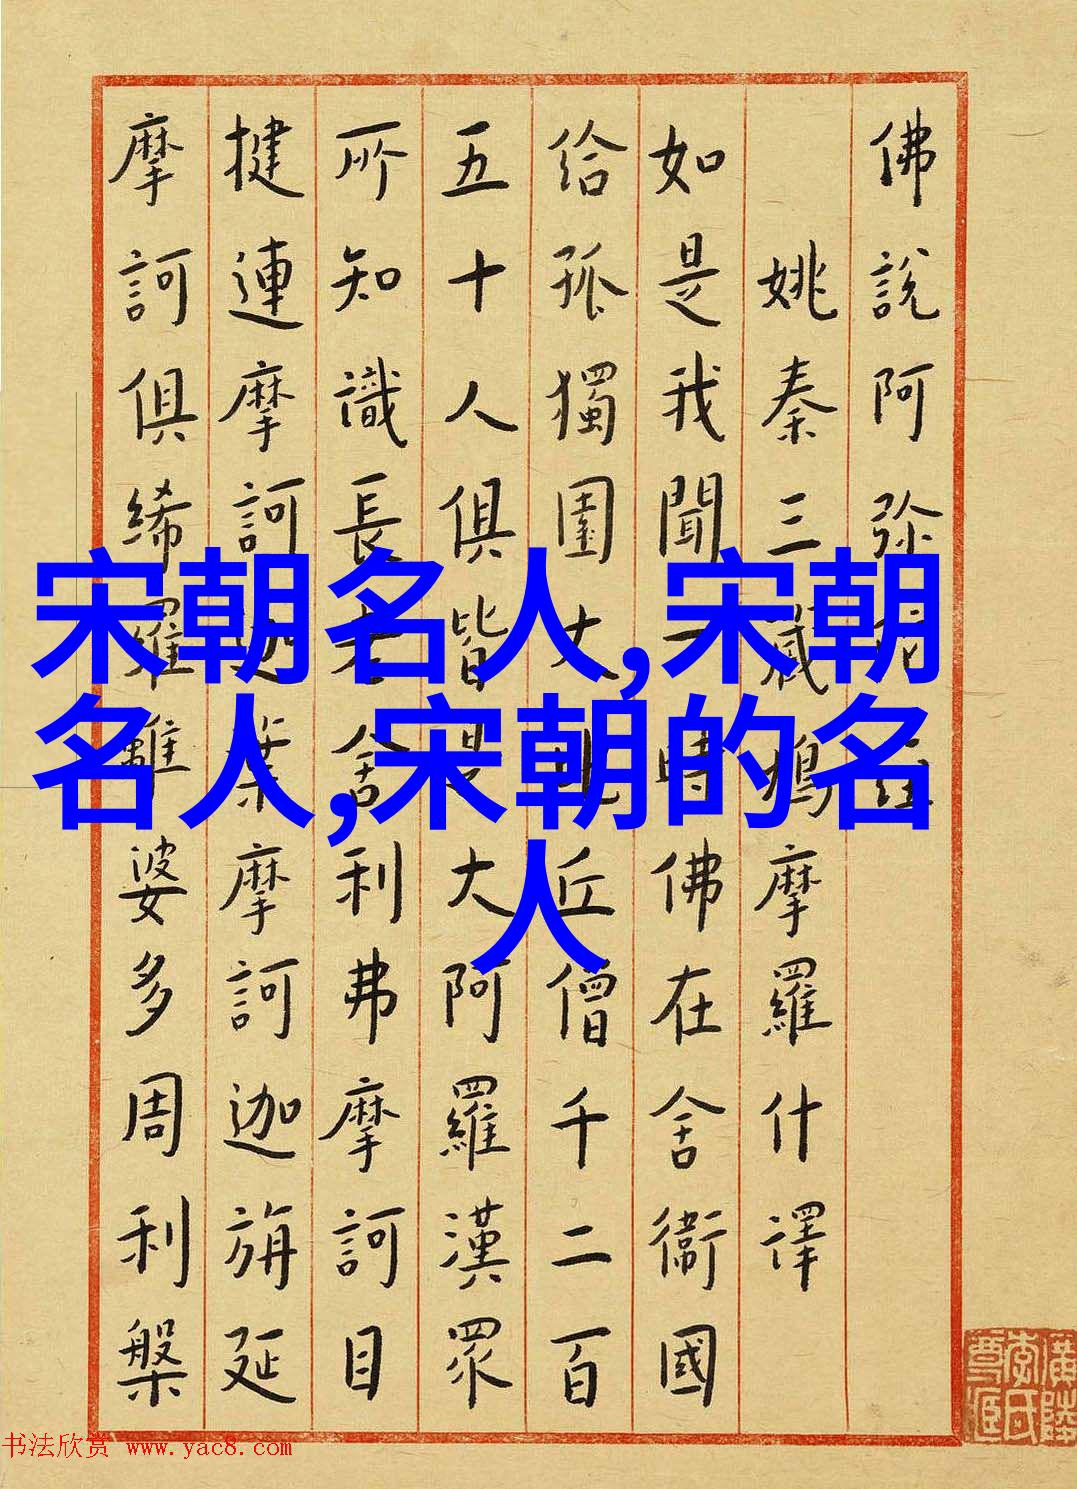 佛說阿弥陀經
姚秦三藏鳩摩羅什譯
如是我聞一時佛在舍衛國
給孤獨園大比丘僧千二百
五十人俱皆是大阿羅漢眾
所知識長老舍利弗摩訶目
揵連摩訶迦葉摩訶迦旃延
摩訶俱絺羅離婆多周利槃
宋朝名人,宋朝
名人,宋朝的名
人
书法欣赏 www.yac8.com